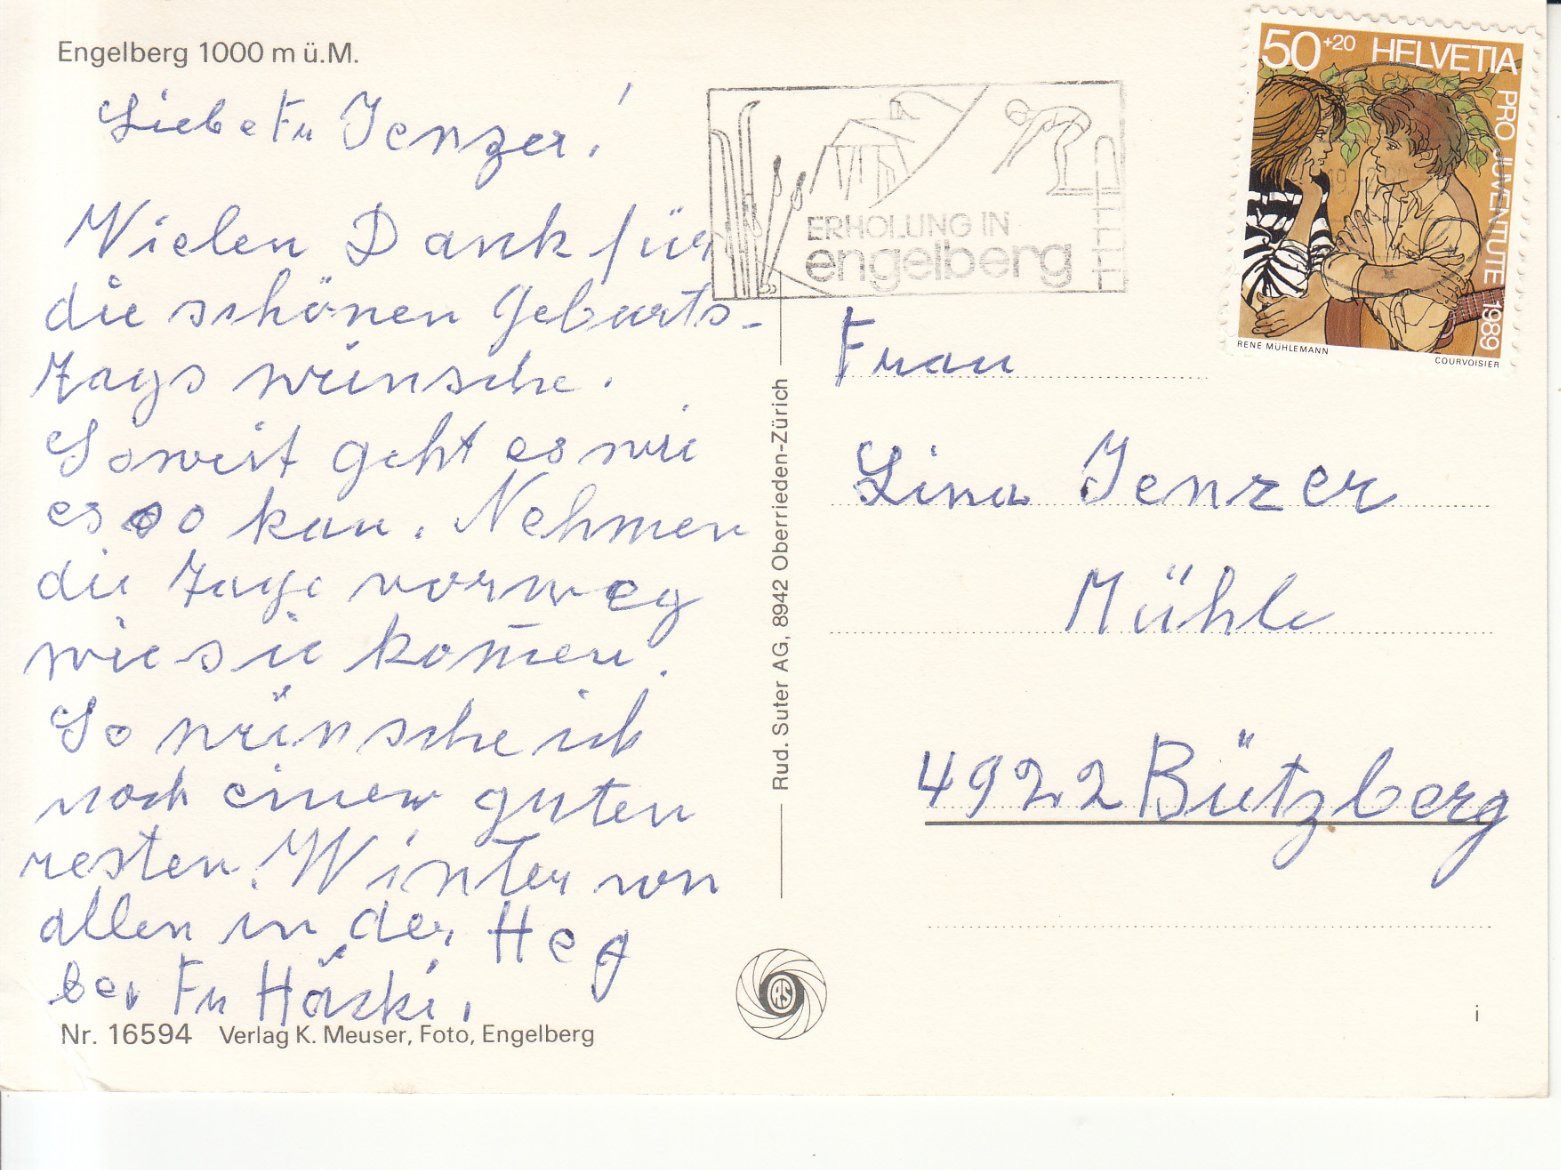 Engelberg 1000 m ü.M.
Liebe Fr Jenzer!
Vielen Dank für
die schönen Geburts-
tags wünsche.
Soweit geht es wie
es so kan. Nehmen
die Tage vorweg
wie sie kom̄en.
So wünsche ich
noch einen guten
resten. Winter von
allen in der Heg
bei Fr
Nr. 16594 Verlag K. Meuser, Foto, Engelberg
Rud. Suter AG, 8942 Oberrieden-Zürich
ERHOLUNG IN
engelberg
50+20 HELVETIA
PRO JUVENTUTE 1989
RENÉ MÜHLEMANN
COURVOISIER
Frau
Lina Jenzer
Mühle
4922 Bützberg
RS
i